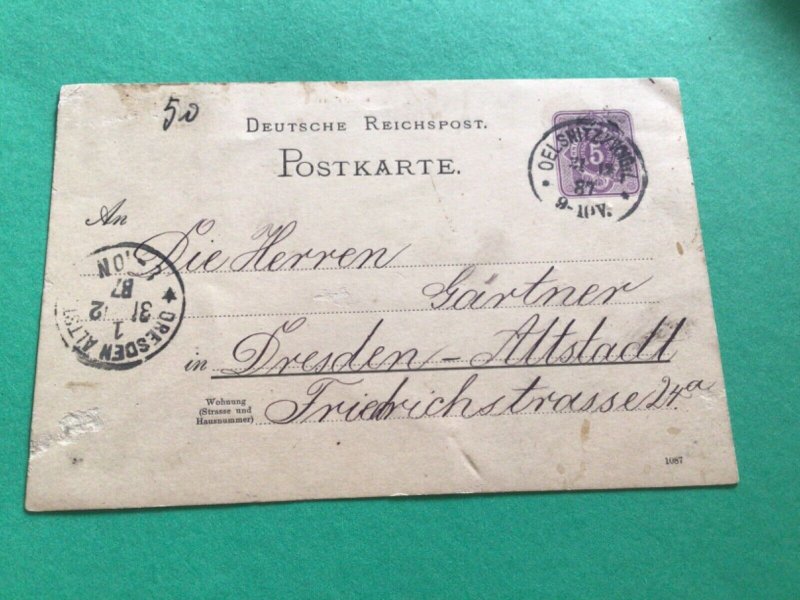 50
DEUTSCHE REICHSPOST.
POSTKARTE.
5
OELSNITZ
87
9-10V.
An
Die Herren
Gärtner
in Dresden-Altstadt
Wohnung
(Strasse und
Hausnummer)
Friedrichstrasse 24a
DRESDEN ALTST
1
31 12
87
ION
1087